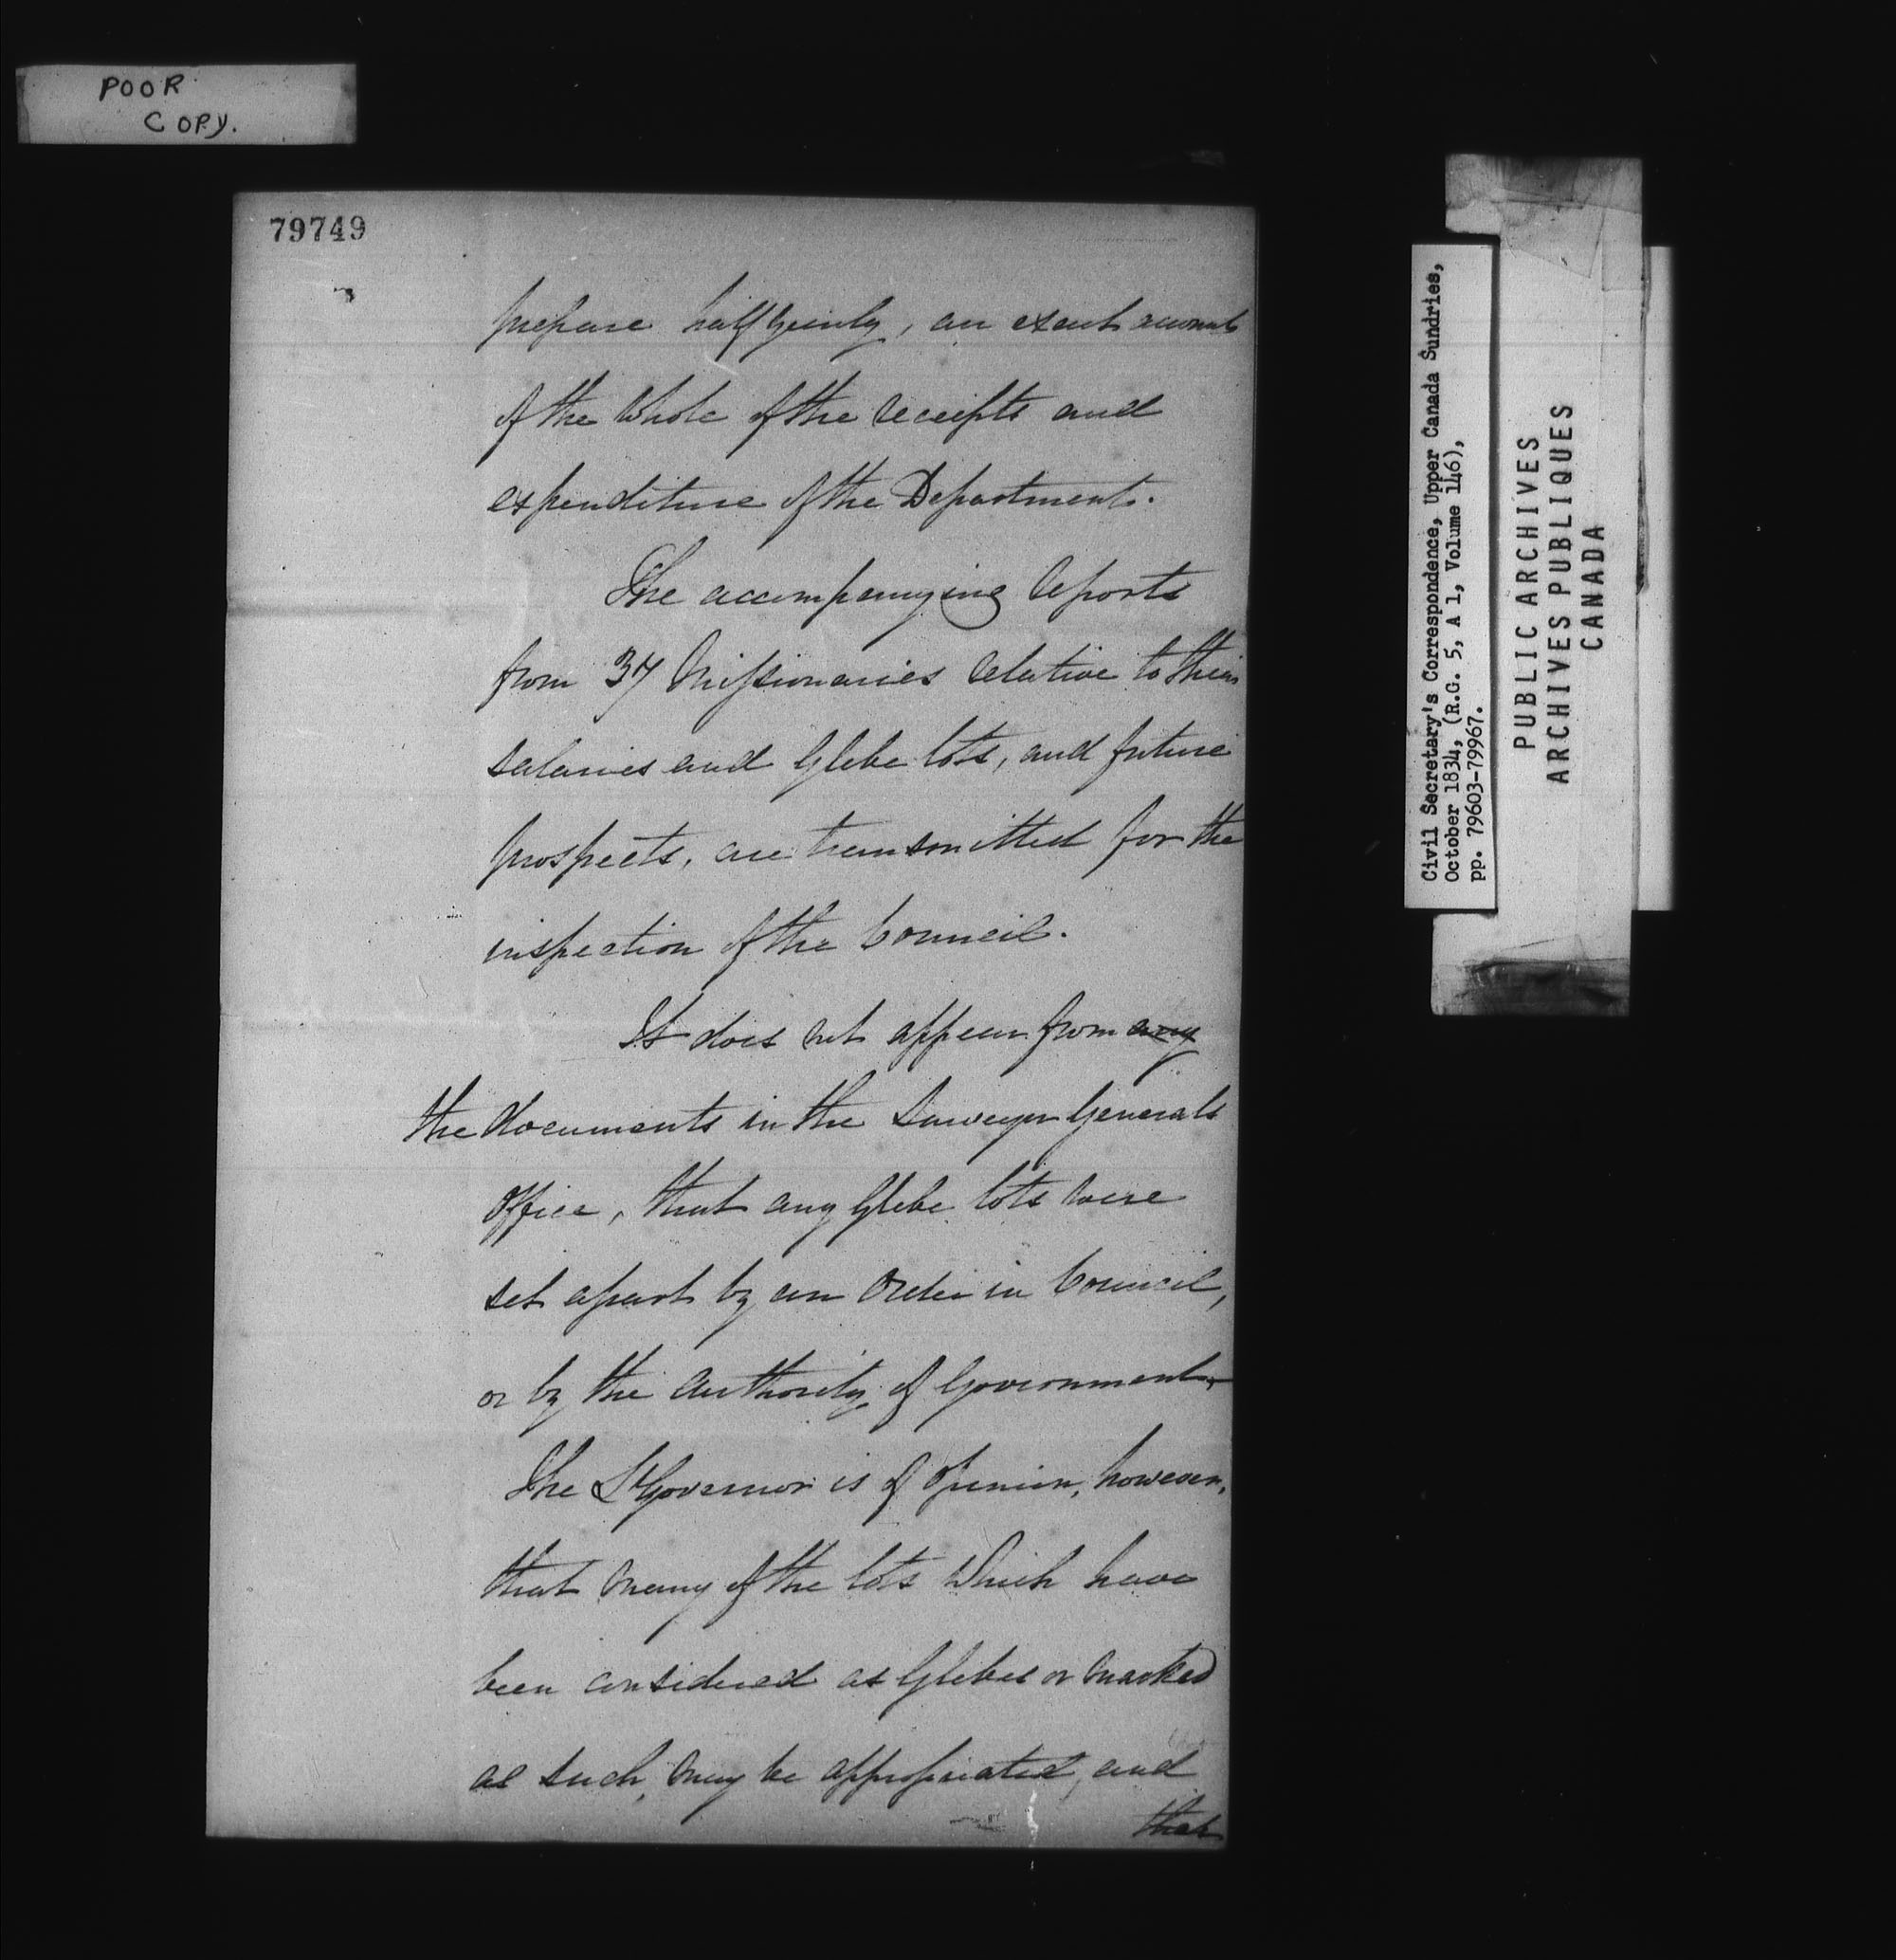 POOR
COPY.
79749
prepare half yearly, an exact account
of the whole of the receipts and
expenditure of the Department.
The accompanying reports
from 37 Missionaries relative to their
salaries and Glebe lots, and future
prospects, are transmitted for the
inspection of the Council.
It does not appear from any
the documents in the Surveyor Generals
Office, that any Glebe lots were
set apart by an Order in Council,
or by the authority of Government.
The Lt Governor is of opinion, however,
that many of the lots which have
been considered as Glebes or marked
as such, may be appropriated, and
that
Civil Secretary's Correspondence, Upper Canada Sundries,
October 1834, (R.G. 5, A 1, Volume 146),
pp. 79603-79967.
PUBLIC ARCHIVES
ARCHIVES PUBLIQUES
CANADA